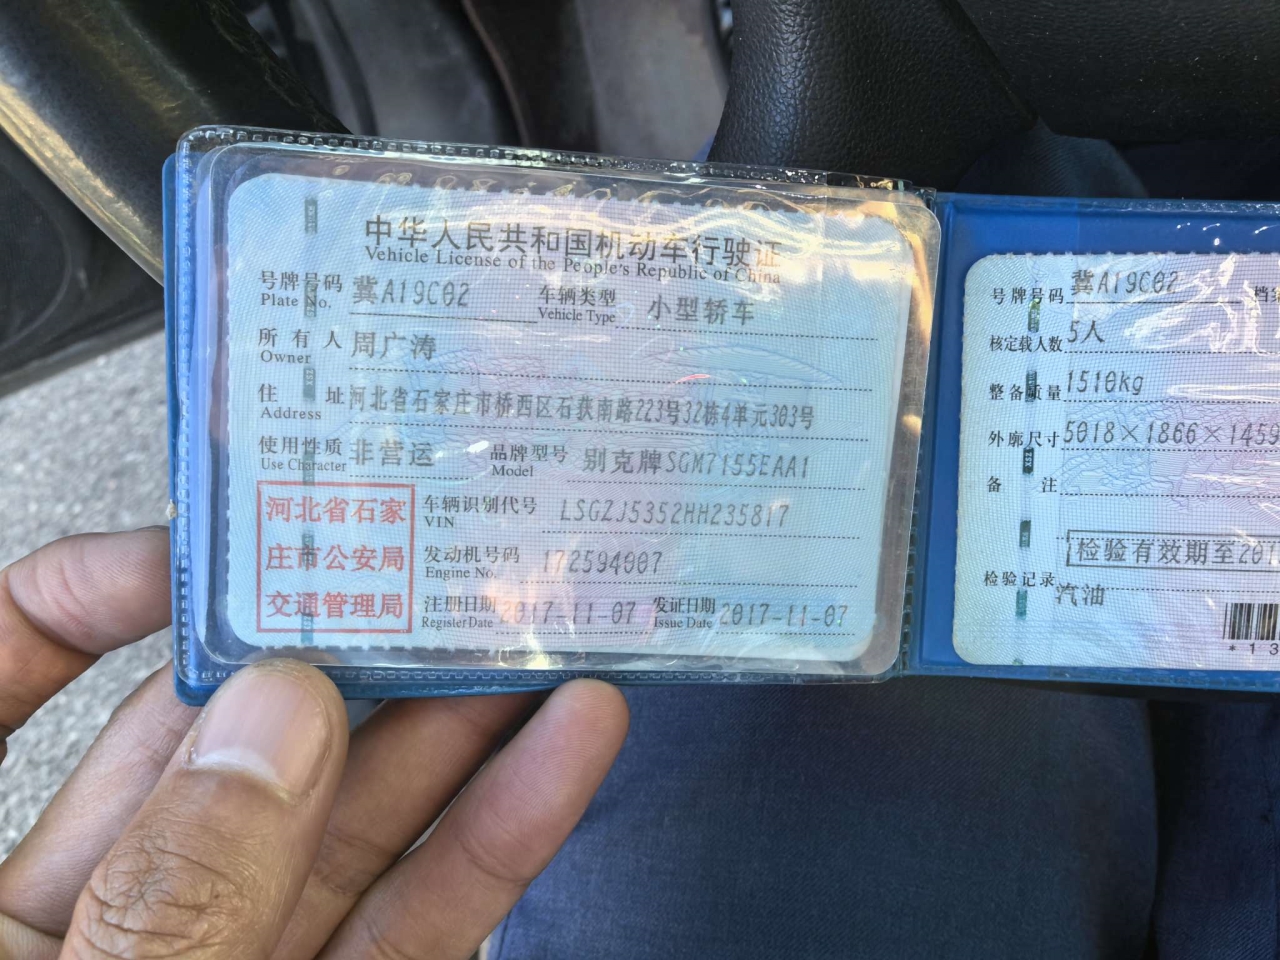 中华人民共和国机动车行驶证
Vehicle License of the People's Republic of China
号牌号码 冀A19C02 车辆类型 小型轿车
Plate No. Vehicle Type
所有人 周广涛
Owner
住址 河北省石家庄市桥西区石获南路223号32栋4单元303号
Address
使用性质 非营运 品牌型号 别克牌SGM7155EAA1
Use Character Model
河北省石家
庄市公安局
交通管理局
车辆识别代号 LSGZJ5352HH235817
VIN
发动机号码 172594007
Engine No.
注册日期 2017-11-07 发证日期 2017-11-07
Register Date Issue Date
号牌号码 冀A19C02
核定载人数 5人
整备质量 1510kg
外廓尺寸 5018×1866×1459
备注
检验有效期至201
检验记录
汽油
*13